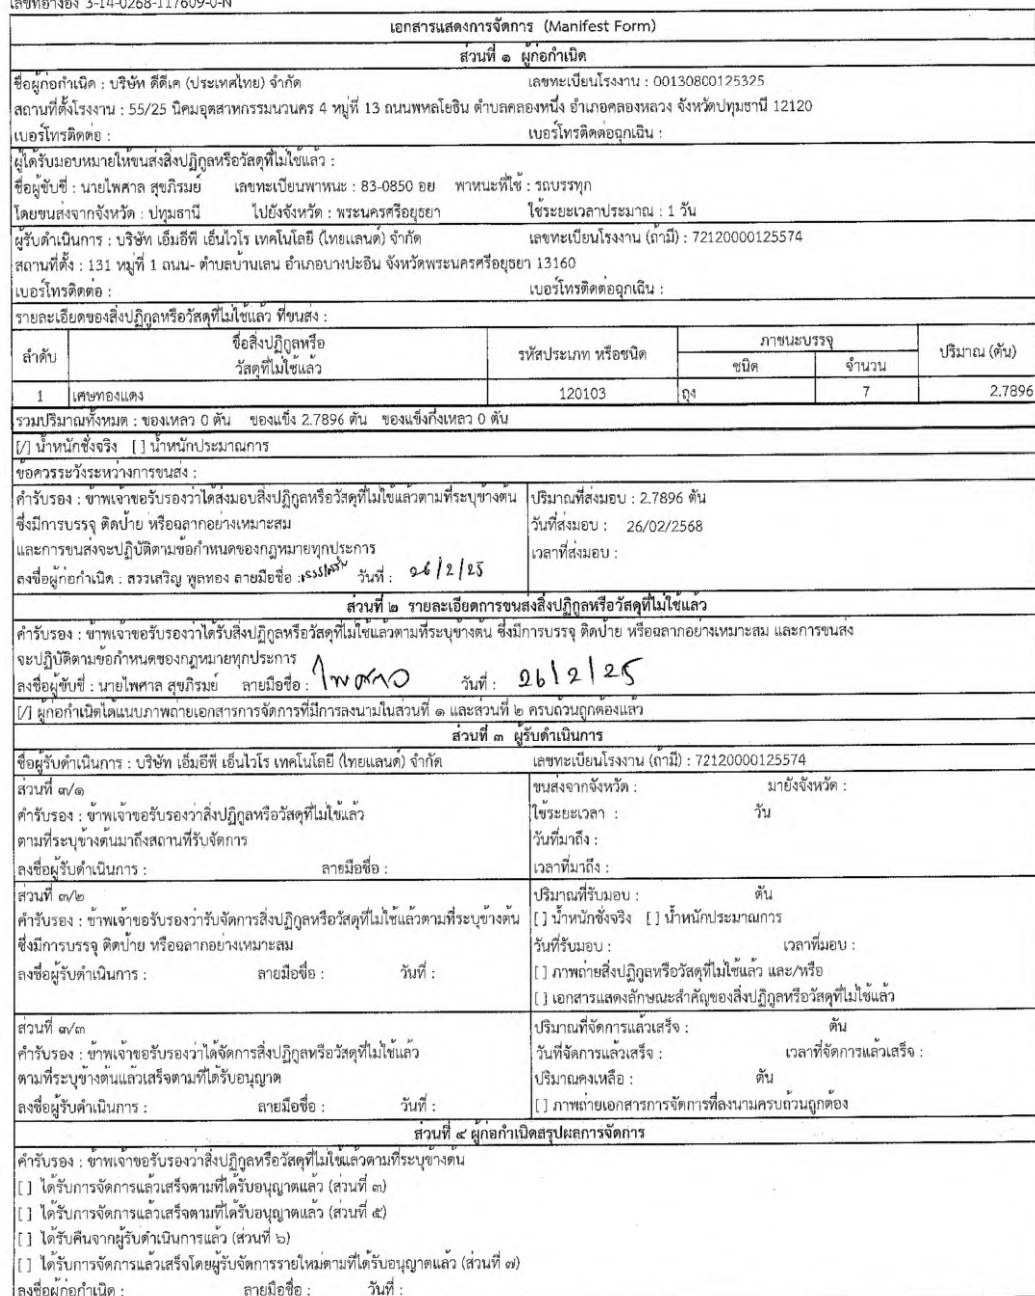 เลขที่อ้างอิง 3-14-0268-117609-0-N
เอกสารแสดงการจัดการ (Manifest Form)
ส่วนที่ ๑ ผู้ก่อกำเนิด
ชื่อผู้ก่อกำเนิด : บริษัท ดีดีเค (ประเทศไทย) จำกัด เลขทะเบียนโรงงาน : 00130800125325
สถานที่ตั้งโรงงาน : 55/25 นิคมอุตสาหกรรมนวนคร 4 หมู่ที่ 13 ถนนพหลโยธิน ตำบลคลองหนึ่ง อำเภอคลองหลวง จังหวัดปทุมธานี 12120
เบอร์โทรติดต่อ : เบอร์โทรติดต่อฉุกเฉิน :
ผู้ได้รับมอบหมายให้ขนส่งสิ่งปฏิกูลหรือวัสดุที่ไม่ใช้แล้ว :
ชื่อผู้ขับขี่ : นายไพศาล สุขภิรมย์ เลขทะเบียนพาหนะ : 83-0850 อย พาหนะที่ใช้ : รถบรรทุก
โดยขนส่งจากจังหวัด : ปทุมธานี ไปยังจังหวัด : พระนครศรีอยุธยา ใช้ระยะเวลาประมาณ : 1 วัน
ผู้รับดำเนินการ : บริษัท เอ็มอีพี เอ็นไวโร เทคโนโลยี (ไทยแลนด์) จำกัด เลขทะเบียนโรงงาน (ถ้ามี) : 72120000125574
สถานที่ตั้ง : 131 หมู่ที่ 1 ถนน- ตำบลบ้านเลน อำเภอบางปะอิน จังหวัดพระนครศรีอยุธยา 13160
เบอร์โทรติดต่อ : เบอร์โทรติดต่อฉุกเฉิน :
รายละเอียดของสิ่งปฏิกูลหรือวัสดุที่ไม่ใช้แล้ว ที่ขนส่ง :
ลำดับ ชื่อสิ่งปฏิกูลหรือ วัสดุที่ไม่ใช้แล้ว รหัสประเภท หรือชนิด ภาชนะบรรจุ ปริมาณ (ตัน)
ชนิด จำนวน
1 เศษทองแดง 120103 ถุง 7 2.7896
รวมปริมาณทั้งหมด : ของเหลว 0 ตัน ของแข็ง 2.7896 ตัน ของแข็งกึ่งเหลว 0 ตัน
[/] น้ำหนักชั่งจริง [ ] น้ำหนักประมาณการ
ข้อควรระวังระหว่างการขนส่ง :
คำรับรอง : ข้าพเจ้าขอรับรองว่าได้ส่งมอบสิ่งปฏิกูลหรือวัสดุที่ไม่ใช้แล้วตามที่ระบุข้างต้น ปริมาณที่ส่งมอบ : 2.7896 ตัน
ซึ่งมีการบรรจุ ติดป้าย หรือฉลากอย่างเหมาะสม วันที่ส่งมอบ : 26/02/2568
และการขนส่งจะปฏิบัติตามข้อกำหนดของกฎหมายทุกประการ เวลาที่ส่งมอบ :
ลงชื่อผู้ก่อกำเนิด : สรรเสริญ พูลทอง ลายมือชื่อ : สรรเสริญ วันที่ : 26/2/25
ส่วนที่ ๒ รายละเอียดการขนส่งสิ่งปฏิกูลหรือวัสดุที่ไม่ใช้แล้ว
คำรับรอง : ข้าพเจ้าขอรับรองว่าได้รับสิ่งปฏิกูลหรือวัสดุที่ไม่ใช้แล้วตามที่ระบุข้างต้น ซึ่งมีการบรรจุ ติดป้าย หรือฉลากอย่างเหมาะสม และการขนส่ง
จะปฏิบัติตามข้อกำหนดของกฎหมายทุกประการ
ลงชื่อผู้ขับขี่ : นายไพศาล สุขภิรมย์ ลายมือชื่อ : ไพศาล วันที่ : 26/2/25
[/] ผู้ก่อกำเนิดได้แนบภาพถ่ายเอกสารการจัดการที่มีการลงนามในส่วนที่ ๑ และส่วนที่ ๒ ครบถ้วนถูกต้องแล้ว
ส่วนที่ ๓ ผู้รับดำเนินการ
ชื่อผู้รับดำเนินการ : บริษัท เอ็มอีพี เอ็นไวโร เทคโนโลยี (ไทยแลนด์) จำกัด เลขทะเบียนโรงงาน (ถ้ามี) : 72120000125574
ส่วนที่ ๓/๑ ขนส่งจากจังหวัด : มายังจังหวัด :
คำรับรอง : ข้าพเจ้าขอรับรองว่าสิ่งปฏิกูลหรือวัสดุที่ไม่ใช้แล้ว ใช้ระยะเวลา : วัน
ตามที่ระบุข้างต้นมาถึงสถานที่รับจัดการ วันที่มาถึง :
ลงชื่อผู้รับดำเนินการ : ลายมือชื่อ : เวลาที่มาถึง :
ส่วนที่ ๓/๒ ปริมาณที่รับมอบ : ตัน
คำรับรอง : ข้าพเจ้าขอรับรองว่ารับจัดการสิ่งปฏิกูลหรือวัสดุที่ไม่ใช้แล้วตามที่ระบุข้างต้น [ ] น้ำหนักชั่งจริง [ ] น้ำหนักประมาณการ
ซึ่งมีการบรรจุ ติดป้าย หรือฉลากอย่างเหมาะสม วันที่รับมอบ : เวลาที่มอบ :
ลงชื่อผู้รับดำเนินการ : ลายมือชื่อ : วันที่ : [ ] ภาพถ่ายสิ่งปฏิกูลหรือวัสดุที่ไม่ใช้แล้ว และ/หรือ
[ ] เอกสารแสดงลักษณะสำคัญของสิ่งปฏิกูลหรือวัสดุที่ไม่ใช้แล้ว
ส่วนที่ ๓/๓ ปริมาณที่จัดการแล้วเสร็จ : ตัน
คำรับรอง : ข้าพเจ้าขอรับรองว่าได้จัดการสิ่งปฏิกูลหรือวัสดุที่ไม่ใช้แล้ว วันที่จัดการแล้วเสร็จ : เวลาที่จัดการแล้วเสร็จ :
ตามที่ระบุข้างต้นแล้วเสร็จตามที่ได้รับอนุญาต ปริมาณคงเหลือ : ตัน
ลงชื่อผู้รับดำเนินการ : ลายมือชื่อ : วันที่ : [ ] ภาพถ่ายเอกสารการจัดการที่ลงนามครบถ้วนถูกต้อง
ส่วนที่ ๔ ผู้ก่อกำเนิดสรุปผลการจัดการ
คำรับรอง : ข้าพเจ้าขอรับรองว่าสิ่งปฏิกูลหรือวัสดุที่ไม่ใช้แล้วตามที่ระบุข้างต้น
[ ] ได้รับการจัดการแล้วเสร็จตามที่ได้รับอนุญาตแล้ว (ส่วนที่ ๓)
[ ] ได้รับการจัดการแล้วเสร็จตามที่ได้รับอนุญาตแล้ว (ส่วนที่ ๕)
[ ] ได้รับคืนจากผู้รับดำเนินการแล้ว (ส่วนที่ ๖)
[ ] ได้รับการจัดการแล้วเสร็จโดยผู้รับจัดการรายใหม่ตามที่ได้รับอนุญาตแล้ว (ส่วนที่ ๗)
ลงชื่อผู้ก่อกำเนิด : ลายมือชื่อ : วันที่ :